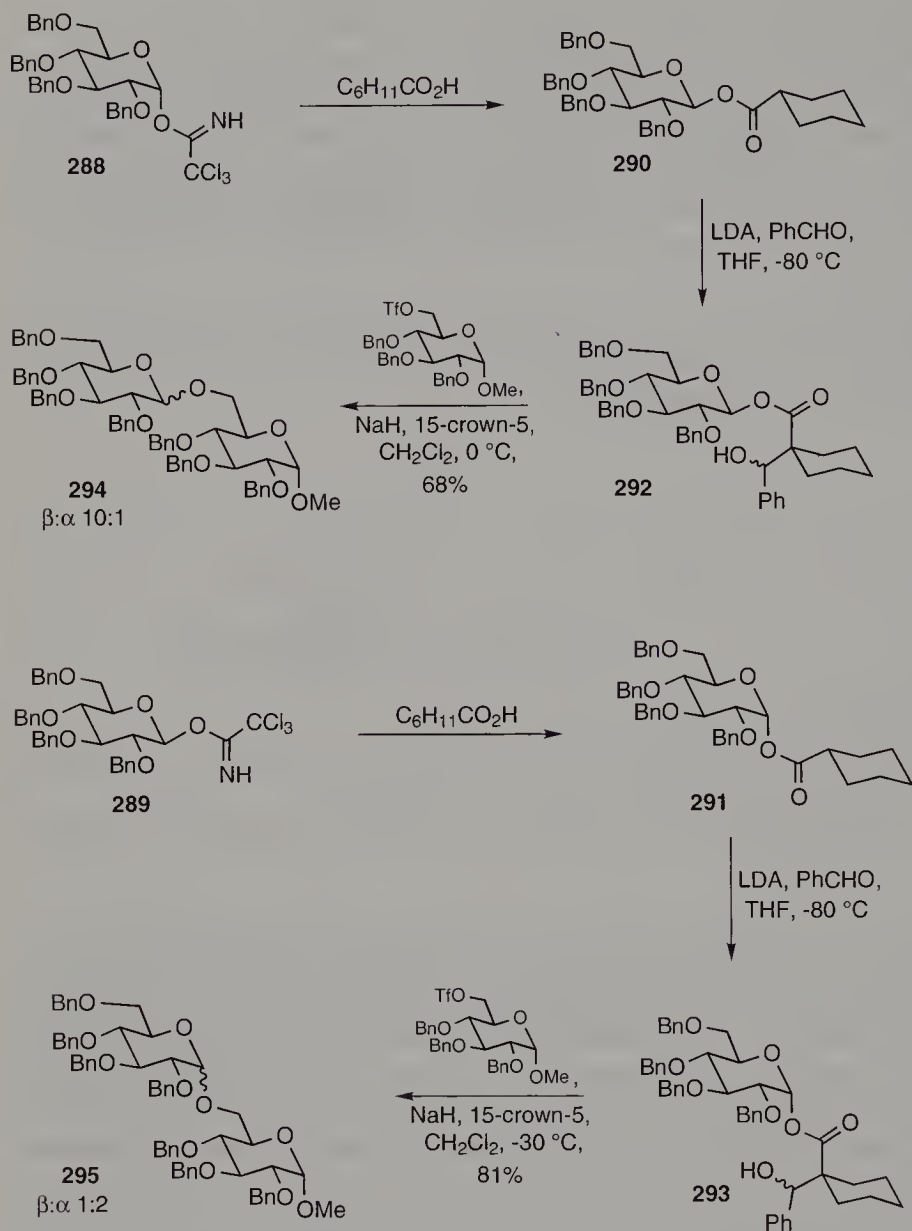 BnO
BnO
BnO
BnO
O
O
NH
CCl3
288
C6H11CO2H
BnO
BnO
BnO
BnO
O
O
O
290
LDA, PhCHO,
THF, -80 °C
BnO
BnO
BnO
BnO
O
O
O
HO
Ph
292
TfO
BnO
BnO
BnO
O
OMe,
NaH, 15-crown-5,
CH2Cl2, 0 °C,
68%
BnO
BnO
BnO
BnO
O
O
BnO
BnO
BnO
O
OMe
294
β:α 10:1
BnO
BnO
BnO
BnO
O
O
CCl3
NH
289
C6H11CO2H
BnO
BnO
BnO
BnO
O
O
O
291
LDA, PhCHO,
THF, -80 °C
BnO
BnO
BnO
BnO
O
O
O
HO
Ph
293
TfO
BnO
BnO
BnO
O
OMe,
NaH, 15-crown-5,
CH2Cl2, -30 °C,
81%
BnO
BnO
BnO
BnO
O
O
BnO
BnO
BnO
O
OMe
295
β:α 1:2